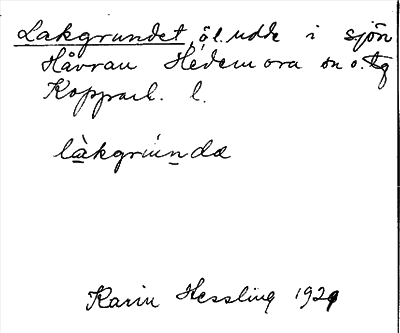 Lakgrundet, öl. udde i sjön
Håvran Hedemora sn o. tg
Kopparb. l.
làkgrúnda
Karin Hessling 1929